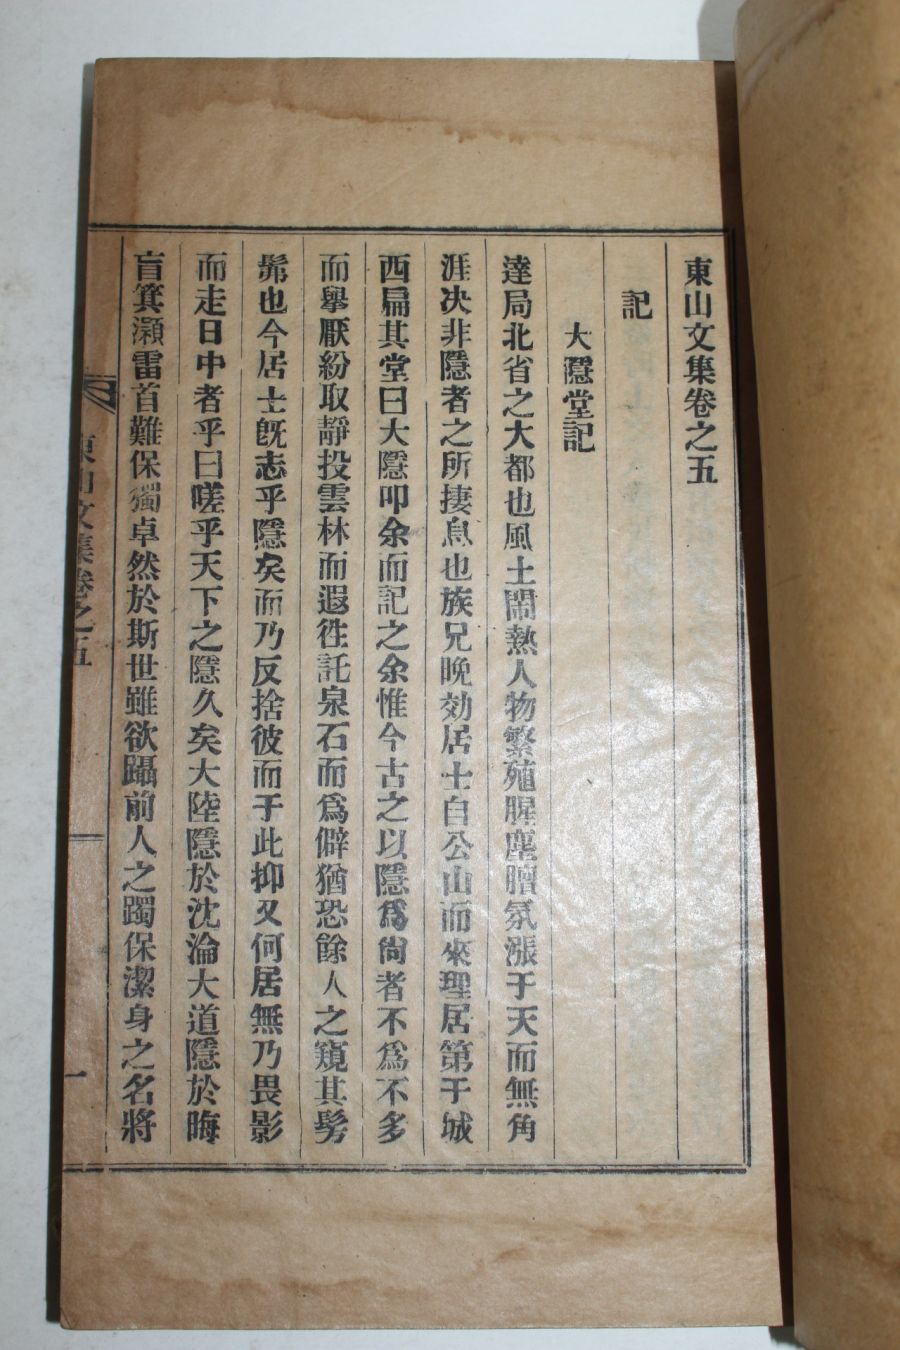 東山文集卷之五
記
大隱堂記
達局北省之大都也風土閙熱人物繁殖腥塵膻氛漲于天而無角
涯决非隱者之所捿息也族兄晩効居士自公山而來理居第于城
西扁其堂曰大隱叩余而記之余惟今古之以隱爲尙者不爲不多
而擧厭紛取靜投雲林而遐徃託泉石而爲僻猶恐餘人之窺其髣
髴也今居士旣志乎隱矣而乃反捨彼而于此抑又何居無乃畏影
而走日中者乎曰嗟乎天下之隱久矣大陸隱於沈淪大道隱於晦
盲箕灝雷首難保獨卓然於斯世雖欲躡前人之躅保潔身之名將
東山文集卷之五
一